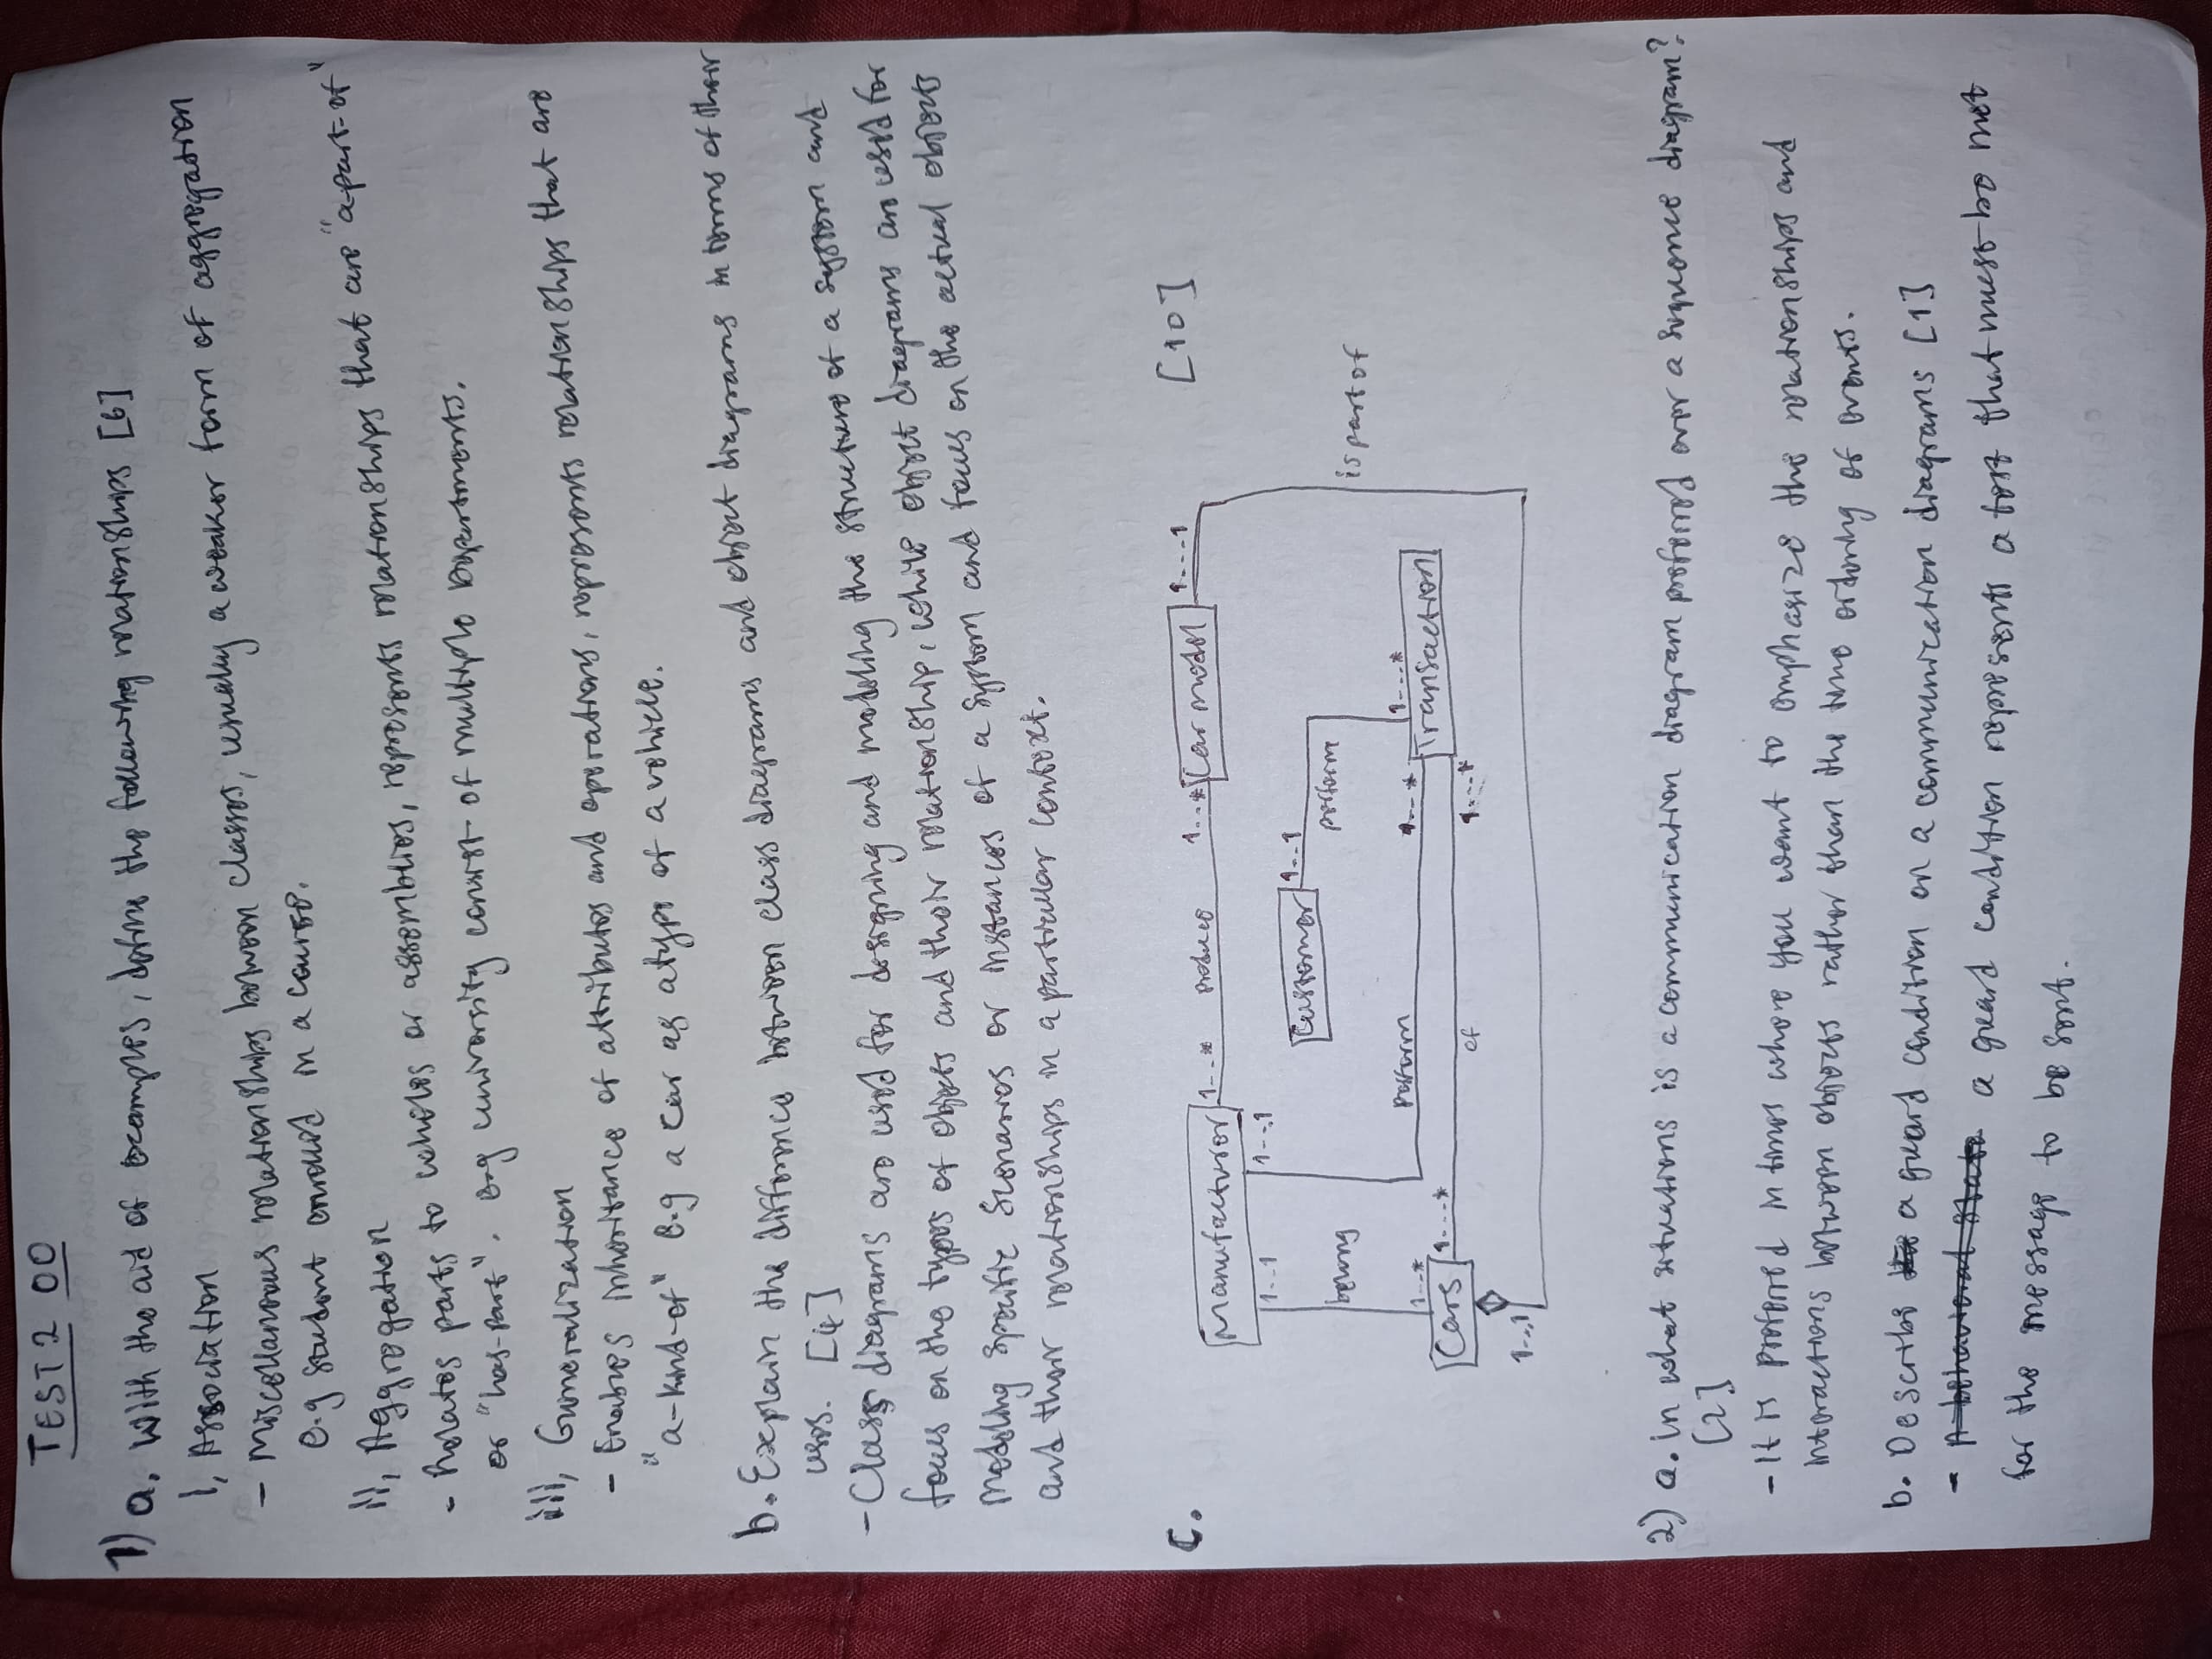 TEST 2 OO
1) a. With the aid of examples, define the following relationships [6]
i, Association
- Miscellaneous relationships between classes, usually a weaker form of aggregation
e.g student enrolled in a course.
ii, Aggregation
- Relates parts to wholes or assemblies, represents relationships that are "a-part-of"
or "has-part". e.g university consist of multiple Departments.
iii, Generalization
- Enables inheritance of attributes and operations, represents relationships that are
"a-kind-of" e.g a car as a type of a vehicle.
b. Explain the difference between class diagrams and object diagrams in terms of their
uses. [4]
- Class diagrams are used for designing and modeling the structure of a system and
focus on the types of objects and their relationship, while object diagrams are used for
modeling specific scenarios or instances of a system and focus on the actual objects
and their relationships in a particular context.
c. [10]
Manufacturer 1...* produce 1...* Car model 1...1
1...1 1...1
Customer 1...1
perform
belong
is part of
perform 1...* 1...*
1...*
Cars 1...* of 1...* Transaction
1...1
2) a. In what situations is a communication diagram preferred over a sequence diagram?
[2]
- It is preferred in times where you want to emphasize the relationships and
interactions between objects rather than the time ordering of events.
b. Describe a guard condition on a communication diagrams [1]
- A behavioral state a guard condition represents a test that must be met
for the message to be sent.